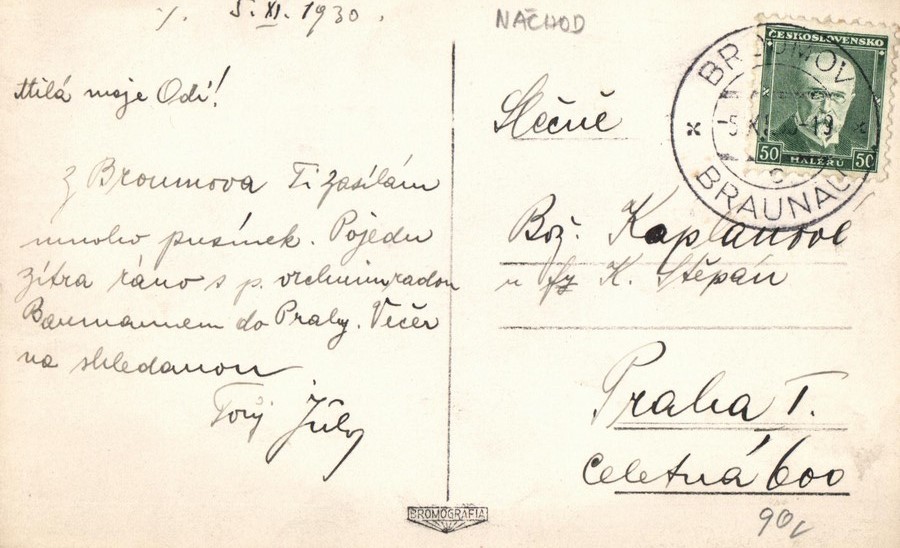 5. XI. 1930.
Milá moje Odi!
Z Broumova Ti zasílám
mnoho pusinek. Pojedu
zítra ráno s p. vrchním radou
Baumannem do Prahy. Večer
na shledanou
Tvůj
NÁCHOD
Slečně
Bož. Kaplanové
u fy K. Štěpán
Praha I.
Celetná 600
90,
ČESKOSLOVENSKO
50 HALÉŘŮ 50
BROUMOV
5 XI. 30-19
c
BRAUNAU
BROMOGRAFIA